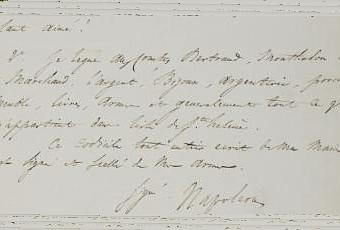 tant aimé !
2° Je lègue aux Comtes Bertrand, Montholon
Marchand. l'argent, Bijoux, argenterie, porce
meuble, livres, armes et généralement tout ce q
m'appartient dans l'isle de Ste hélène.
Ce Codicile tout entier écrit de ma Main
est signé et scellé de mes armes.
Signé Napoléon